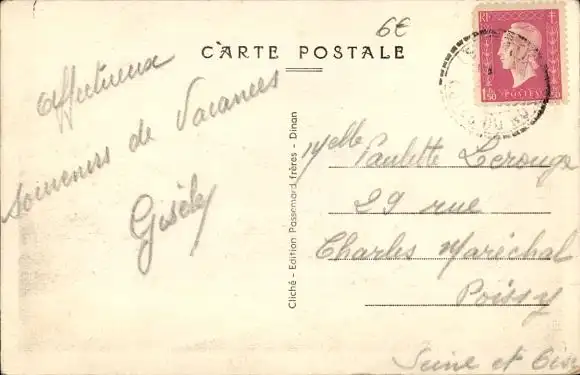 6€
CARTE POSTALE
RF
1F50
POSTES
Affectueux
Souvenirs de Vacances
Gisèle
Cliché - Edition Passemard frères - Dinan
Melle Paulette Lerouge
29 rue
Charles Maréchal
Poissy
Seine et Oise